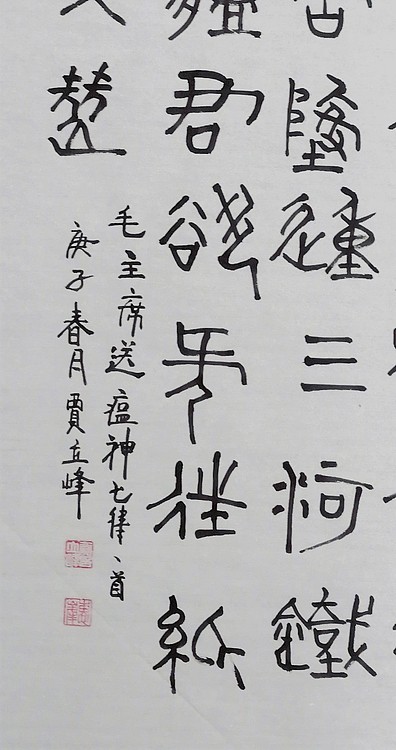 地動三河鐵
君欲何往紙
燒
毛主席送瘟神七律一首
庚子春月賈立峰